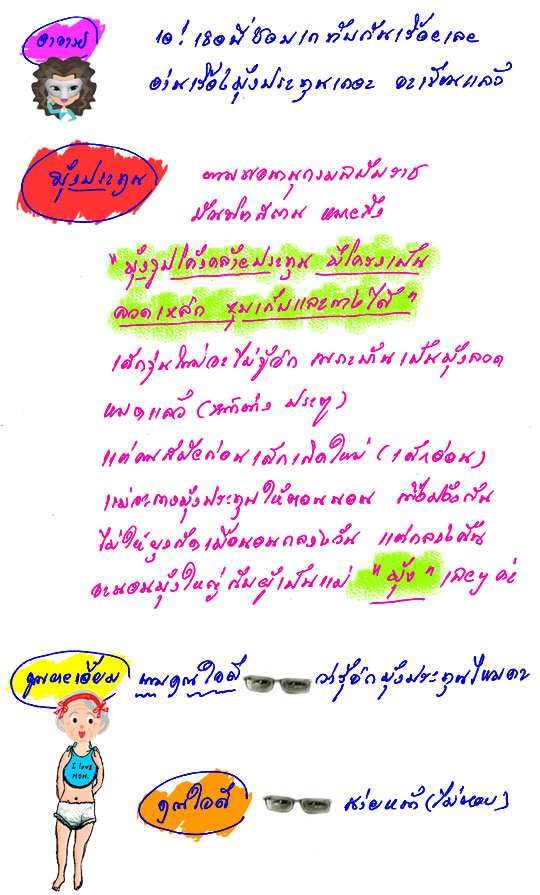 อาจารย์ เอ! เธอนี่ชอบเกทับกันเรื่อยเลย
อ่านเรื่องมุ้งประทุนเถอะ จะเขียนแล้ว
มุ้งประทุน ตามพจนานุกรมฉบับราช
บัณฑิตสถาน หมายถึง
"มุ้งรูปโค้งคล้ายประทุน มีโครงเป็น
ลวดเหล็ก หุบเก็บและกางได้"
เด็กรุ่นใหม่จะไม่รู้จัก เพราะบ้านเป็นมุ้งลวด
หมดแล้ว (หน้าต่าง ประตู)
แต่คนสมัยก่อนเด็กเกิดใหม่ (เด็กอ่อน)
แม่จะกางมุ้งประทุนให้ตอนนอน เพื่อป้องกัน
ไม่ให้ยุงกัดเมื่อนอนกลางวัน แต่กลางคืน
จะนอนมุ้งใหญ่กับผู้เป็นแม่ "มุ้ง" เฉยๆ ค่ะ
ถามคุณใจดี ว่ารู้จักมุ้งประทุนไหมคะ
I love
MOM.
คุณใจดี ส่ายหน้า (ไม่ตอบ)